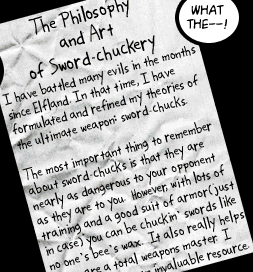 The Philosophy
and Art
of Sword-chuckery
WHAT
THE--!
I have battled many evils in the months
since Elfland. In that time, I have
formulated and refined my theories of
the ultimate weapon: sword-chucks.
The most important thing to remember
about sword-chucks is that they are
nearly as dangerous to your opponent
as they are to you. However, with lots of
training and a good suit of armor (just
in case) you can be chuckin' swords like
no one's bee's wax. It also really helps
are a total weapons master. I
invaluable resource.